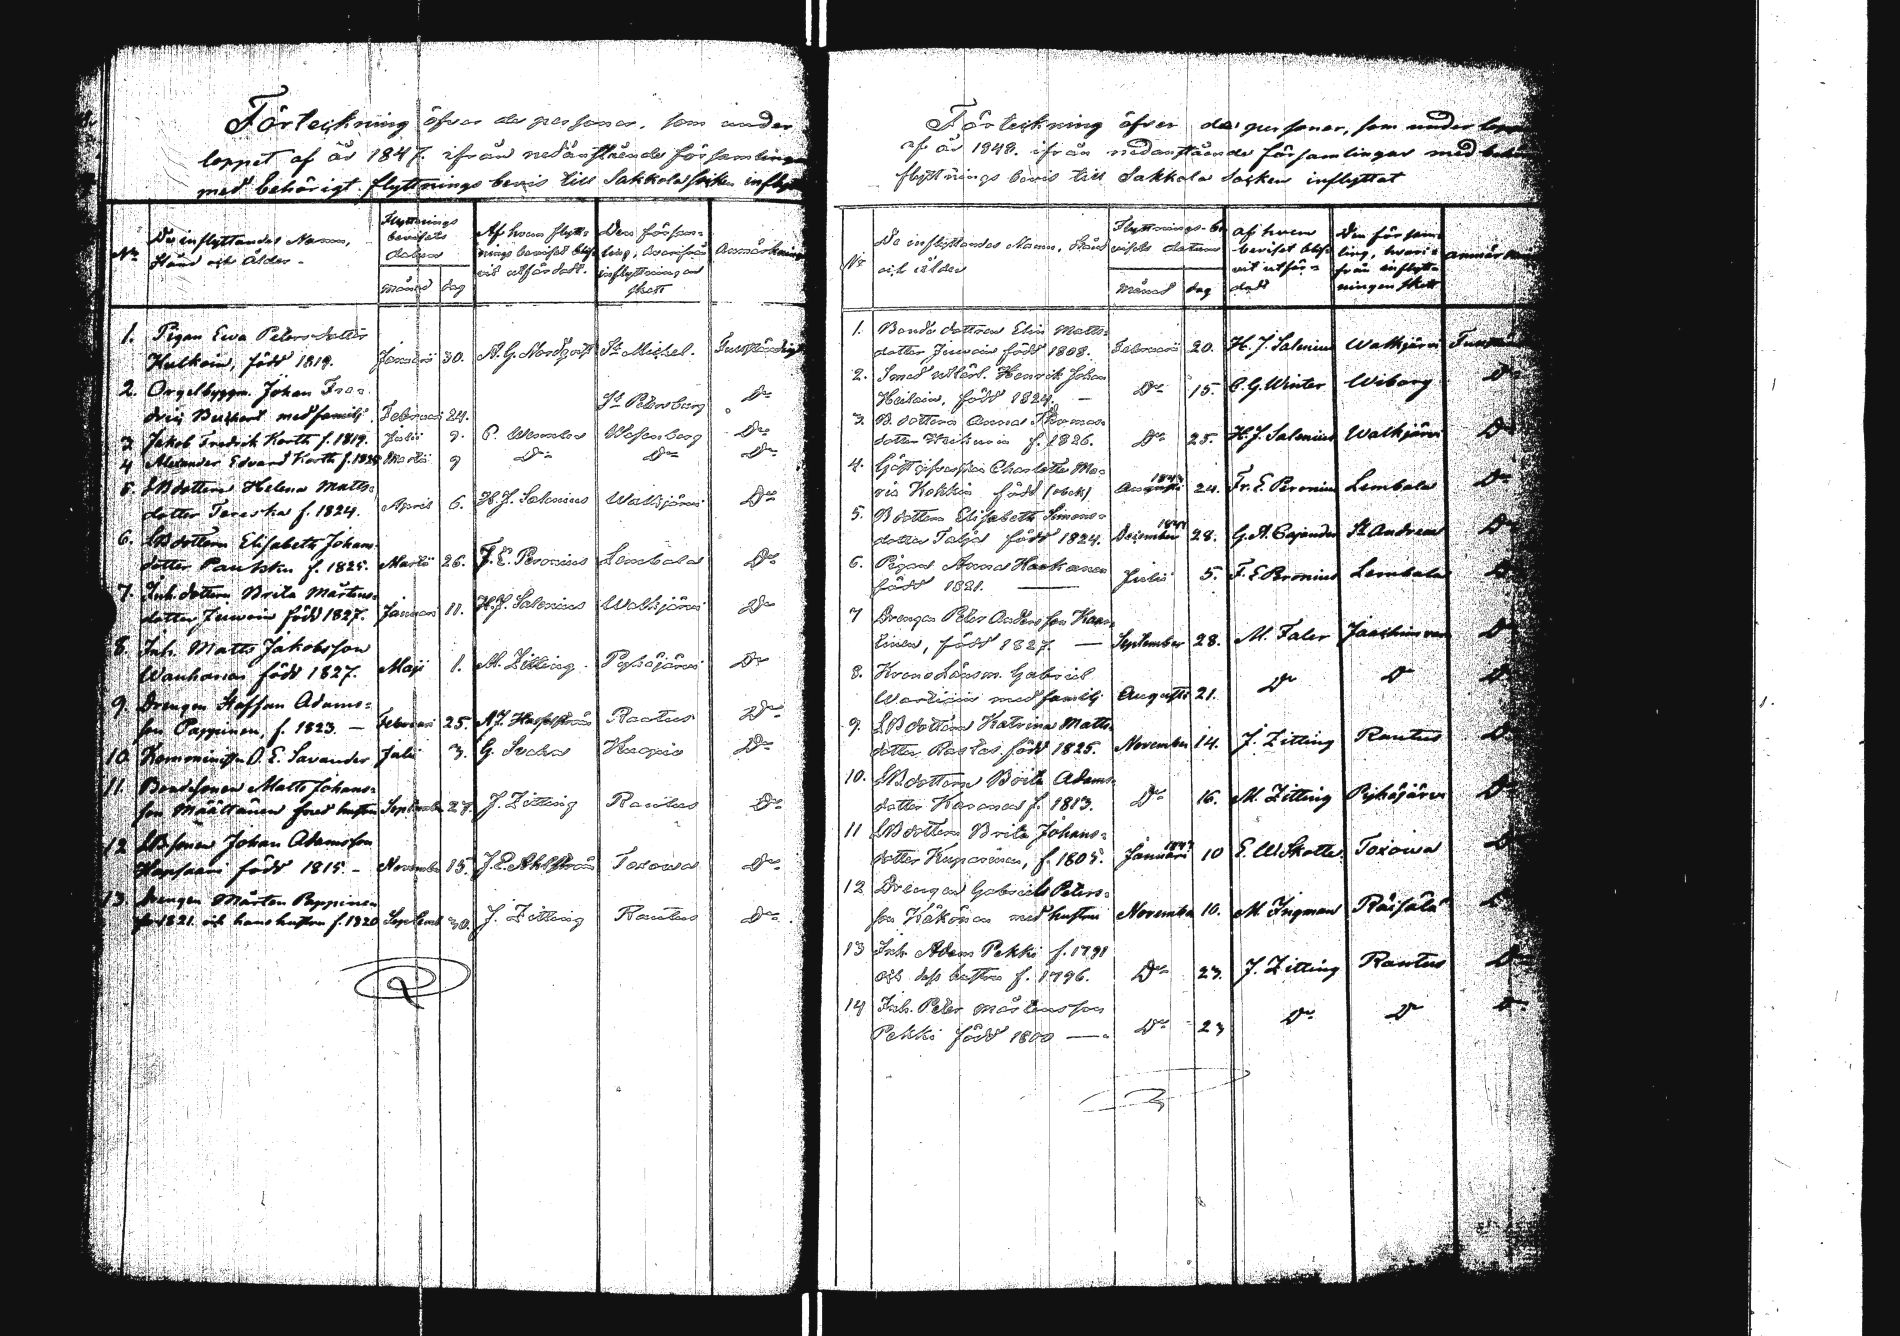 Förteckning öfver de personer, som under
loppet af år 1847. ifrån nedanstående församlingar
med behörigt flyttnings bevis till Sakkola socken inflyttat
No
De inflyttandes Namn,
Stånd och Ålder.
Flyttnings
bevisets
datum
månad dag
Af hvem flytt-
nings beviset blif-
vit utfärdadt.
Den försam-
ling, hvarifrån
inflyttningen
skett
Anmärkning
1. Pigan Ewa Petersdotter
Hulkoin, född 1819. Januarii 30. A. G. Nordqvist St Michel.
2. Orgelbyggn. Johan Fred-
rik med familj. Februarii 24. St Petersburg Do
3 Jakob Fredrik Korth f. 1819. Julii 9. Do
4 Alexander Edvard Korth Martii 9 Do Do Do
5. LBdottern Helena Matts-
dotter Tereska f. 1824. April 6. H. J. Salenius Walkjärvi Do
6. LBdottern Elisabeth Johans-
dotter Paukku f. 1825. Martii 26. F. E. Peronius Lembala Do
7. Inh. dottern Brita Mårtens-
dotter Juwain född 1827. Januari 11. H. J. Salenius Walkjärvi Do
8. Inh. Matts Jakobsson
Wanhanen född 1827. Maji 1. M. Zitting Pyhäjärvi Do
9. Drengen Staffan Adams-
son Pappinen, f. 1823. — Februari 25. Rautus Do
10. Komminister O. E. Savander Julii 3. G. Kuopio Do
11. Bondsonen Matts Johans-
son Määttänen med hustru September 27. J. Zitting Rautus Do
12 LBsonen Johan Adamsson
född 1815. - November 15. J. E. Ahlström Toxowa Do
13 Drengen Mårten Pappinen
f. 1821. och hans hustru f. 1820 September 30. J. Zitting Rautus Do
Förteckning öfver de personer, som under loppet
af år 1848. ifrån nedanstående församlingar med behörigt
flyttnings bevis till Sakkola Socken inflyttat
No
De inflyttandes Namn, Stånd
och ålder
Flyttnings-be-
visets datum
månad dag
af hvem
beviset blif-
vit utfär-
dadt
Den försam-
ling, hvari-
från inflytt-
ningen skett
anmärkning
1. Bonde dottren Elin Matts-
dotter Juwain född 1808. Februarii 20. H. J. Salenius Walkjärvi
2. Henrik Johan
född 1824. — Do 15. C. G. Winter Wiborg Do
3. B dottern Anna Thomas
dotter f. 1826. Do 25. H. J. Salenius Walkjärvi Do
4. Charlotta Ma-
ria Kokkin född (obek) Augusti 1847 24. Fr. E. Peronius Lembala Do
5. B dottern Elisabeth Simons-
dotter Talja född 1824. December 1847 28. G. A. Cajander St Andreæ Do
6. Pigan Anna Haakanen
född 1821. — Julii 5. F. E Peronius Lembala Do
7 Drengen Peter Andersson
född 1827. — September 28. M. Faler Jaakimvara Do
8. Krono Länsm. Gabriel
med familj Augusti 21. Do Do Do
9. LBdottern Katrina Matts-
dotter född 1825. November 14. J. Zitting Rautus Do
10. LBdottern Brita Adams-
dotter f. 1813. Do 16. M. Zitting Pyhäjärvi Do
11 LBdottern Brita Johans-
dotter Kuparinen, f. 1805. Januari 1847 10 Toxowa Do
12 Drengen Gabriel Peters-
son Käkönen med hustru November 10. M. Ingman Räisälä Do
13 Inh. Adam Pekki f. 1791
och dess hustru f. 1796. Do 23. J. Zitting Rautus Do
14 Inh. Peter Mårtensson
Pekki född 1800 — Do 23 Do Do Do